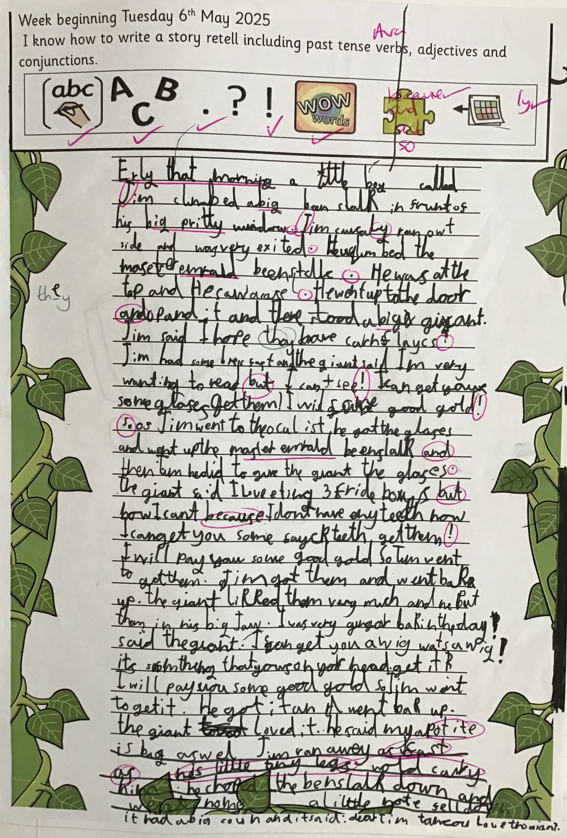 Week beginning Tuesday 6th May 2025
Ava
I know how to write a story retell including past tense verbs, adjectives and
conjunctions.
abc A B C . ? ! WOW words because and but so ly
Erly that morning a little boy called
Jim clumbed a big ban stalk in frunt of
his big pritty window. Jim ran owt
side and was very exited. He clumbed the
emrald beenstalk. He was at the
top and He saw a . He went up to the door
and opand it and there stood a big giyant.
they
Jim said I hope thay have
Jim had some and the giant said I'm very
wanting to read but I can't see! I can get you
some glases. Get them! I will give good gold!
so Jim went to the oculist he got the glases
and went up the emrald beenstalk and
then Jim to give the giant the glases.
the giant said I love eting 3 fride boyys but
I cant because I dont have eny teeth now
I can get you some teeth, get them!
I will pay you some good gold so Jim went
to get them. Jim got them and went bak
up. the giant likked them very much and he put
them in his big . I was very bak in the day!
said the giant. I can get you a wig wats a wig!
its somthing that you on your head get it
I will pay you some good gold so Jim went
to get it. he got it and went bak up.
the giant loved it. he said my apotite
is big as wel Jim ran away as fast
as his little tiny legs wold carry
him. he choped the benstalk down and
went home a little note
it had a big coun and it said: dear Jim love the giant.